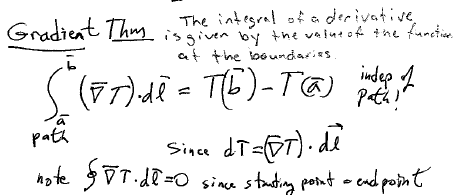 Gradient Thm The integral of a derivative
is given by the value of the function
at the boundaries.
∫_a̅^b̅ (∇̅T)·dl⃗ = T(b̅) - T(a̅) indep of path!
path
Since dT = (∇̅T)·dl⃗
note ∮ ∇̅T·dl̅ = 0 since starting point = endpoint